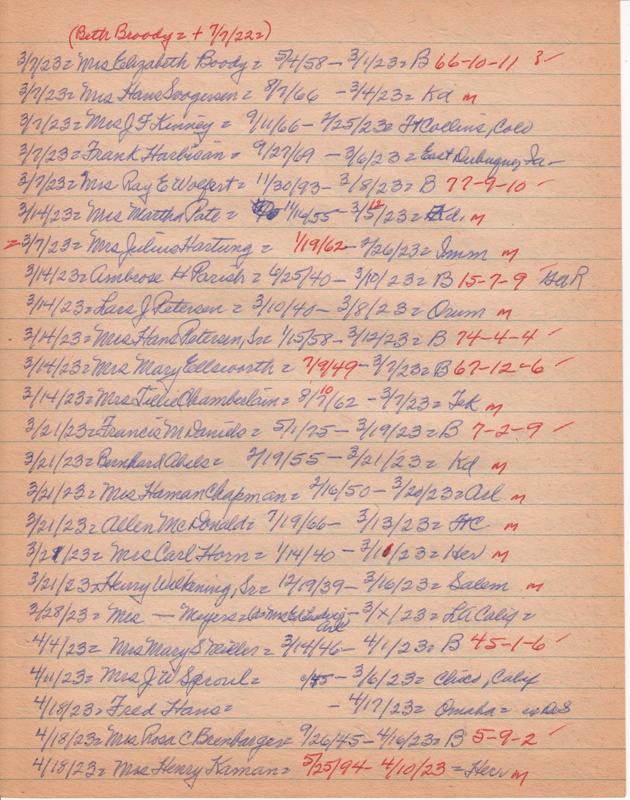 (Beth Broody = + 7/7/22 =)
3/7/23 = Mrs Elizabeth Boody = 5/4/58 - 3/1/23 = B 66-10-11
3/7/23 = Mrs Hans Soogersen = 8/7/66 - 3/4/23 = Kd m
3/7/23 = Mrs J F Kinney = 9/11/66 - 2/25/23 = Ft Collins, Colo
3/7/23 = Frank Harbisan = 9/27/69 - 3/6/23 = East Dubuque, Ia -
3/7/23 = Mrs Ray E Wolfert = 11/30/93 - 3/8/23 = B 77-9-10
3/14/23 = Mrs Martha Pate = 11/16/55 - 3/12/23 = Kd. m
= 3/7/23 = Mrs Julius Hartung = 1/19/62 - 2/26/23 = Imm m
3/14/23 = Ambrose H Parish = 6/25/40 - 3/10/23 = B 15-7-9 GAR
3/14/23 = Lars J. Petersen = 3/10/40 - 3/8/23 = Orum m
3/14/23 = Mrs Hans Petersen, Sr = 1/15/58 - 3/12/23 = B 74-4-4
3/14/23 = Mrs Mary Ellsworth = 7/9/49 - 3/7/23 = B 67-12-6
3/14/23 = Mrs Tillie Chamberlain = 8/10/62 - 3/7/23 = Tek m
3/21/23 = Francis McDaniels = 5/1/75 - 3/19/23 = B 7-2-9
3/21/23 = Bernhard Abels = 2/19/55 - 3/21/23 = Kd m
3/21/23 = Mrs Haman Chapman = 2/16/50 - 3/20/23 = Arl m
3/21/23 = Allen McDonald = 7/19/66 - 3/13/23 = FtC m
3/21/23 = Mrs Carl Horn = 1/14/40 - 3/11/23 = Her m
3/21/23 = Henry Wilkening, Sr = 12/19/39 - 3/16/23 = Salem m
3/28/23 = Mrs — Meyers = Mrs Ed Ludwig, Arl - 3/x/23 = LA Calif =
4/4/23 = Mrs Mary S Miller = 3/14/46 - 4/1/23 = B 45-1-6
4/11/23 = Mrs J W Sproul = c/45 - 3/6/23 = Chico, Calif
4/18/23 = Fred Hans = - 4/17/23 = Omaha =
4/18/23 = Mrs Rosa C Beenbarger = 9/26/45 - 4/16/23 = B 5-9-2
4/18/23 = Mrs Henry Kaman = 5/25/94 - 4/10/23 = Her m